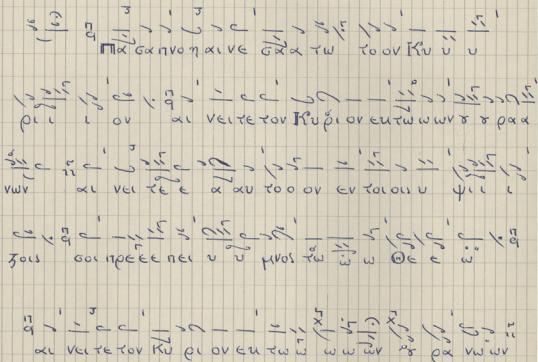 Πα σα πνο η αι νε σα α τω το ον Κυ υ υ
ρι ι ι ον αι νει τε τον Κυ ρι ον εκ τω ω ων ȣ ȣ ρα α
νων αι νει τε ε α αυ το ο ον εν τοι οις υ ψι ι ι
ξοις σοι πρε ε ε πει υ υ μνος τω ω ω Θε ε ω
αι νει τε τον Κυ ρι ον εκ τω ω ω ω ων ȣ ρα νω ων